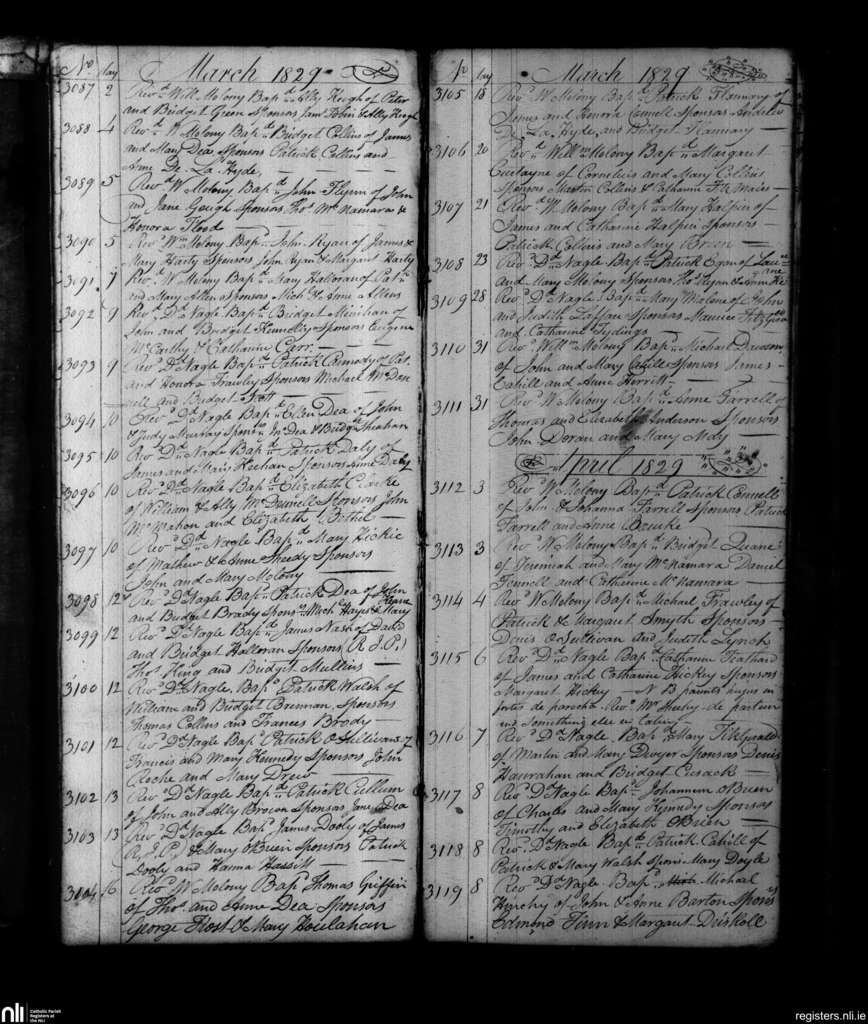 No Day March 1829
3087 2 Revd Will. Molony Bapd Ally Keogh of Peter
and Bridget Green Sponsors John & Ally Keogh
3088 4 Revd W Molony Bapd Bridget Collins of James
and Mary Dea Sponsors Patrick Collins and
Anne De La Hyde
3089 5 Revd W Molony Bapd John Flynn of John
and Jane Geugh Sponsors Thos McNamara &
Honora Flood
3090 5 Revd Wm Molony Bapd John Ryan of James &
Mary Harty Sponsors John Ryan & Margaret Harty
3091 7 Revd W Molony Bapd Mary Halloran of Patk
and Mary Allen Sponsors Mich & Anne Allens
3092 9 Revd Dr Nagle Bapd Bridget Minihan of
John and Bridget Hennelly Sponsors Eugene
McCarthy & Catharine Carr
3093 9 Revd Dr Nagle Bapd Patrick Carmody of Pat
and Honora Frawley Sponsors Michael McDon
nell and Bridget Scott
3094 10 Revd Dr Nagle Bapd Ellen Dea of John
& Judy Murray Sponsors Dea & Bridget Sheehan
3095 10 Revd Dr Nagle Bapd Patrick Daly of
James and Mary Keehan Sponsors Anne Daly
3096 10 Revd Dr Nagle Bapd Elizabeth Clarke
of William & Ally McDonnell Sponsors John
McMahon and Elizabeth Bethel
3097 10 Revd Dr Nagle Bapd Mary Hickie
of Mathew & Anne Sheedy Sponsors
John and Mary Molony
3098 12 Revd Dr Nagle Bapd Patrick Dea of John
and Bridget Brady Spons Mich Hayes & Mary Keane
3099 12 Revd Dr Nagle Bapd James Nash of David
and Bridget Halloran Sponsors R. J. P.
Thos King and Bridget Mullins
3100 12 Revd Dr Nagle Bapd Patrick Walsh of
William and Bridget Brennan Sponsors
Thomas Collins and Frances Brody
3101 12 Revd Dr Nagle Bapd Patrick O Sullivan of
Francis and Mary Kennedy Sponsors John
Roche and Mary Drew
3102 13 Revd Dr Nagle Bapd Patrick Cullum
of John and Ally Brown Sponsor Jane Dea
3103 13 Revd Dr Nagle Bapd James Dooly of James
R. J. P. & Mary OBrien Sponsors Patrick
Dooly and Hanna Hassitt
3104 16 Revd W Molony Bapd Thomas Griffin
of Thos and Anne Dea Sponsors
George Frost & Mary Houlahan
No Day March 1829
3105 18 Revd W Molony Bapd Patrick Flannary of
James and Honora Connell Sponsors Andrew
De La Hyde and Bridget Flannary
3106 20 Revd Willm Molony Bapd Margaret
of Cornelius and Mary Collins
Sponsors Martin Collins & Catharine Fitz Maries
3107 21 Revd W Molony Bapd Mary Halpin of
James and Catharine Halpin Sponsors
Patrick and Mary Breen
3108 23 Revd Dr Nagle Bapd Patrick Egan of
and Mary Molony Sponsors Thos Flynn & Ann
3109 28 Revd Dr Nagle Bapd Mary Malone of John
and Judith Laffan Sponsors Maurice Fitzgerald
and Catharine Tydings
3110 31 Revd Willm Molony Bapd Michael Dawson
of John and Mary Cahill Sponsors James
Cahill and Anne Herritt
3111 31 Revd W Molony Bapd Anne Farrell of
Thomas and Elizabeth Anderson Sponsors
John Doran and Mary Mdy
April 1829
3112 3 Revd W Molony Bapd Patrick Connell
of John & Johanna Farrell Sponsors Patrick
Farrell and Anne Bourke
3113 3 Revd W Molony Bapd Bridget Quane
of Jeremiah and Mary McNamara Daniel
Fennell and Catherine McNamara
3114 4 Revd W Molony Bapd Michael Frawley of
Patrick & Margaret Smyth Sponsors
Denis O Sullivan and Judith Lynch
3115 6 Revd Dr Nagle Bapd Catharine Feathard
of James and Catharine Hickey Sponsors
Margaret Hickey N B parents hujus in
fortes de parocha Revd Mr Sheehy de partiun
and Something else in Calvary
3116 7 Revd Dr Nagle Bapd Mary FitzGerald
of Martin and Mary Dwyer Sponsors Denis
Hanrahan and Bridget Cusack
3117 8 Revd Dr Nagle Bapd Johannem OBrien
of Charles and Mary Kennedy Sponsors
Timothy and Elizabeth OBrien
3118 8 Revd Dr Nagle Bapd Patrick Cahill of
Patrick & Mary Walsh Spons Mary Doyle
3119 8 Revd Dr Nagle Bapd Michael
Hinchy of John & Anne Barton Spons
Edmond Finn & Margaret Driskoll
nli Catholic Parish
Registers at
the NLI
registers.nli.ie